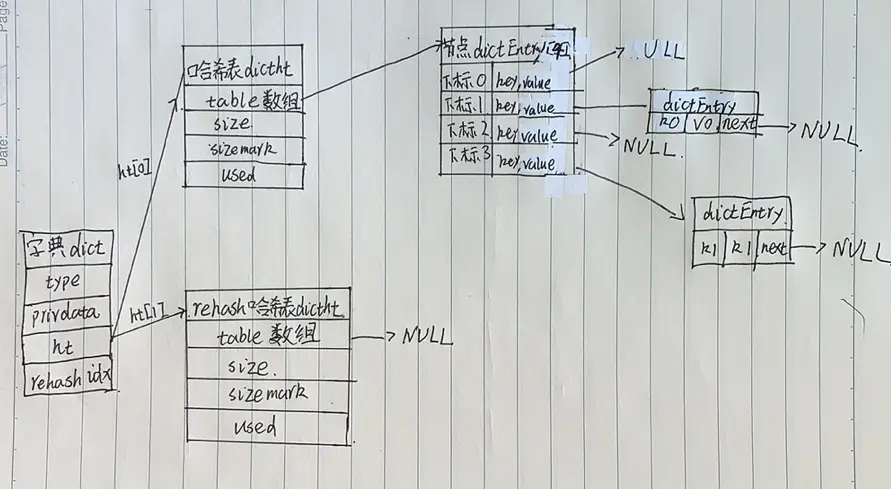 Page
Date:
哈希表dictht
table数组
size
sizemark
used
节点dictEntry
下标0 key,value
下标1 key,value
下标2 key,value
下标3 key,value
ULL
dictEntry
k0 v0 next
NULL
NULL.
dictEntry
k1 k1 next
NULL
ht[0]
ht[1]
字典dict
type
privdata
ht
rehash idx
rehash哈希表dictht
table数组
size.
sizemark
used
NULL